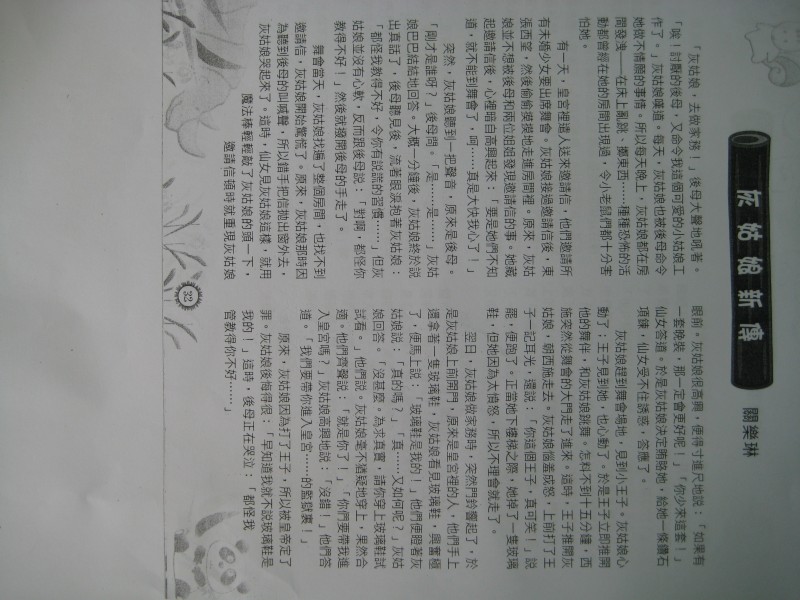 灰姑娘新傳
關樂琳
「灰姑娘，去做家務！」後母大聲地吼著。
「唉！討厭的後母，又命令我這個可愛的小姑娘工
作了。」灰姑娘嘆道。每天，灰姑娘也被後母命令
她做不情願的事情。所以每天晚上，灰姑娘都在房
間發洩——在床上亂跳、擲東西……種種恐怖的活
動都曾經在她的房間出現過，令小老鼠們都十分害
怕她。
有一天，皇宮裡遣人送來邀請信，他們邀請所
有未婚少女要出席舞會。灰姑娘接過邀請信後，東
張西望，然後偷偷摸摸地走進房間裡。原來，灰姑
娘並不想被後母和兩位姐姐發現邀請信的事。她藏
起邀請信後，心裡暗自高興起來：「要是她們不知
道，就不能到舞會了，呵……真是大快我心了！」
突然，灰姑娘聽到一把聲音，原來是後母。
「剛才是誰呀？」後母問。「是……是……」灰姑
娘巴巴結結地回答。大概一分鐘後，灰姑娘終於說
出真話了，後母聽見後，流著眼淚抱著灰姑娘：
「都怪我教得不好，令你有說謊的習慣……」但灰
姑娘並沒有心軟，反而跟後母說：「對啊，都怪你
教得不好！」然後就撥開後母的手走了。
舞會當天，灰姑娘找遍了整個房間，也找不到
邀請信，灰姑娘開始驚慌了。原來，灰姑娘那時因
為聽到後母的叫喊聲，所以錯手把信拋出窗外去，
灰姑娘哭起來了。這時，仙女見灰姑娘這樣，就用
魔法棒輕輕敲了灰姑娘的頭一下，
邀請信頓時就重現灰姑娘
眼前。灰姑娘很高興，便得寸進尺地說：「如果有
一套晚裝，那一定會更好呢！」「你少來這套！」
仙女答道。於是灰姑娘決定賄賂她，給她一條鑽石
項鍊，仙女受不住誘惑，答應了。
灰姑娘趕到舞會場地，見到小王子。灰姑娘心
動了；王子見到她，也心動了。於是王子立即推開
他的舞伴，和灰姑娘跳舞。怎料不到十五分鐘，西
施突然從舞會的大門走了進來。這時，王子推開灰
姑娘，朝西施走去。灰姑娘惱羞成怒，上前打了王
子一記耳光，還說：「你這個王子，真可笑！」說
罷，便跑了。正當她下樓梯之際，她掉了一隻玻璃
鞋，但她因為太憤怒，所以不理會就走了。
翌日，灰姑娘做家務時，突然門鈴響起了，於
是灰姑娘上前開門，原來是皇宮裡的人，他們手上
還拿著一隻玻璃鞋，灰姑娘看見玻璃鞋，興奮極
了，便馬上說：「玻璃鞋是我的！」他們便瞪著灰
姑娘說：「真的嗎？」「真……又如何呢？」灰姑
娘回答。「沒甚麼。為求真實，請你穿上玻璃鞋試
試看。」他們說。灰姑娘毫不猶疑地穿上，果然合
適。他們齊聲說：「就是你了！」「你們要帶我進
入皇宮嗎？」灰姑娘高興地說：「沒錯！」他們答
道。「我們要帶你進入皇宮……的監獄裏！」
原來，灰姑娘因為打了王子，所以被皇帝定了
罪。灰姑娘後悔得很：「早知道我就不說玻璃鞋是
我的！」這時，後母正在哭泣：「都怪我
管教得你不好……」
32